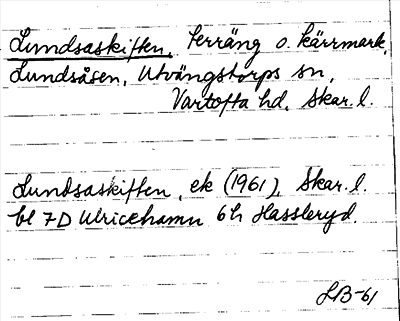 Lundsaskiften, terräng o. kärrmark,
Lundsåsen, Utvängstorps sn,
Vartofta hd, Skar. l.
Lundsaskiften, ek (1961), Skar. l.
bl 7D Ulricehamn 6h Hassleryd.
LB-61